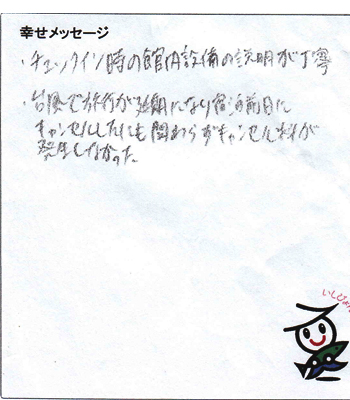 幸せメッセージ
・チェックイン時の館内設備の説明が丁寧
・台風で旅行が延期になり宿泊前日に
キャンセルしたにも関わらずキャンセル料が
発生しなかった。